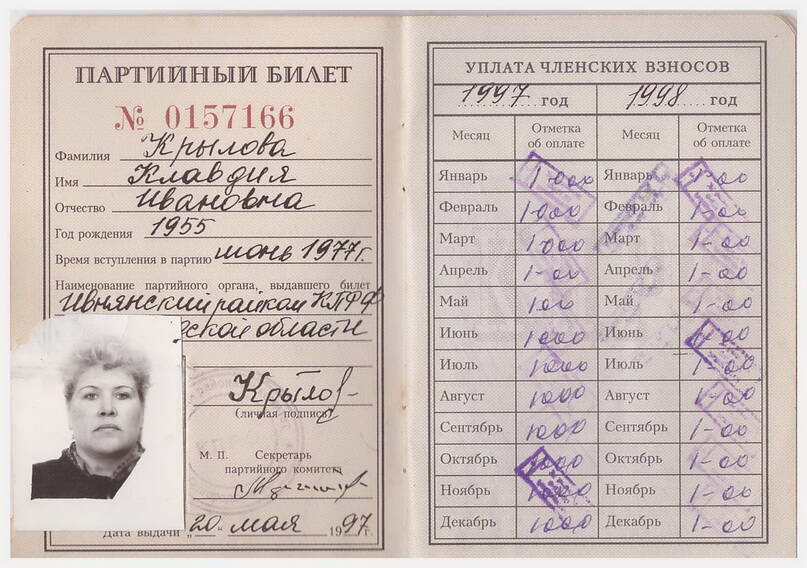 ПАРТИЙНЫЙ БИЛЕТ
№ 0157166
Фамилия Крылова
Имя Клавдия
Отчество Ивановна
Год рождения 1955
Время вступления в партию июнь 1977г.
Наименование партийного органа, выдавшего билет
Ивнянский райком КПРФ
ской области
Крылов
(личная подпись)
М. П. Секретарь
партийного комитета
Дата выдачи „20“ мая 1997г.
УПЛАТА ЧЛЕНСКИХ ВЗНОСОВ
1997 год 1998 год
Месяц Отметка об оплате Месяц Отметка об оплате
Январь 1000 Январь 1-00
Февраль 1000 Февраль 1-00
Март 1000 Март 1-00
Апрель 1-00 Апрель 1-00
Май 100 Май 1-00
Июнь 1000 Июнь 1-00
Июль 1000 Июль 1-00
Август 1000 Август 1-00
Сентябрь 1000 Сентябрь 1-00
Октябрь 1000 Октябрь 1-00
Ноябрь 1000 Ноябрь 1-00
Декабрь 1000 Декабрь 1-00